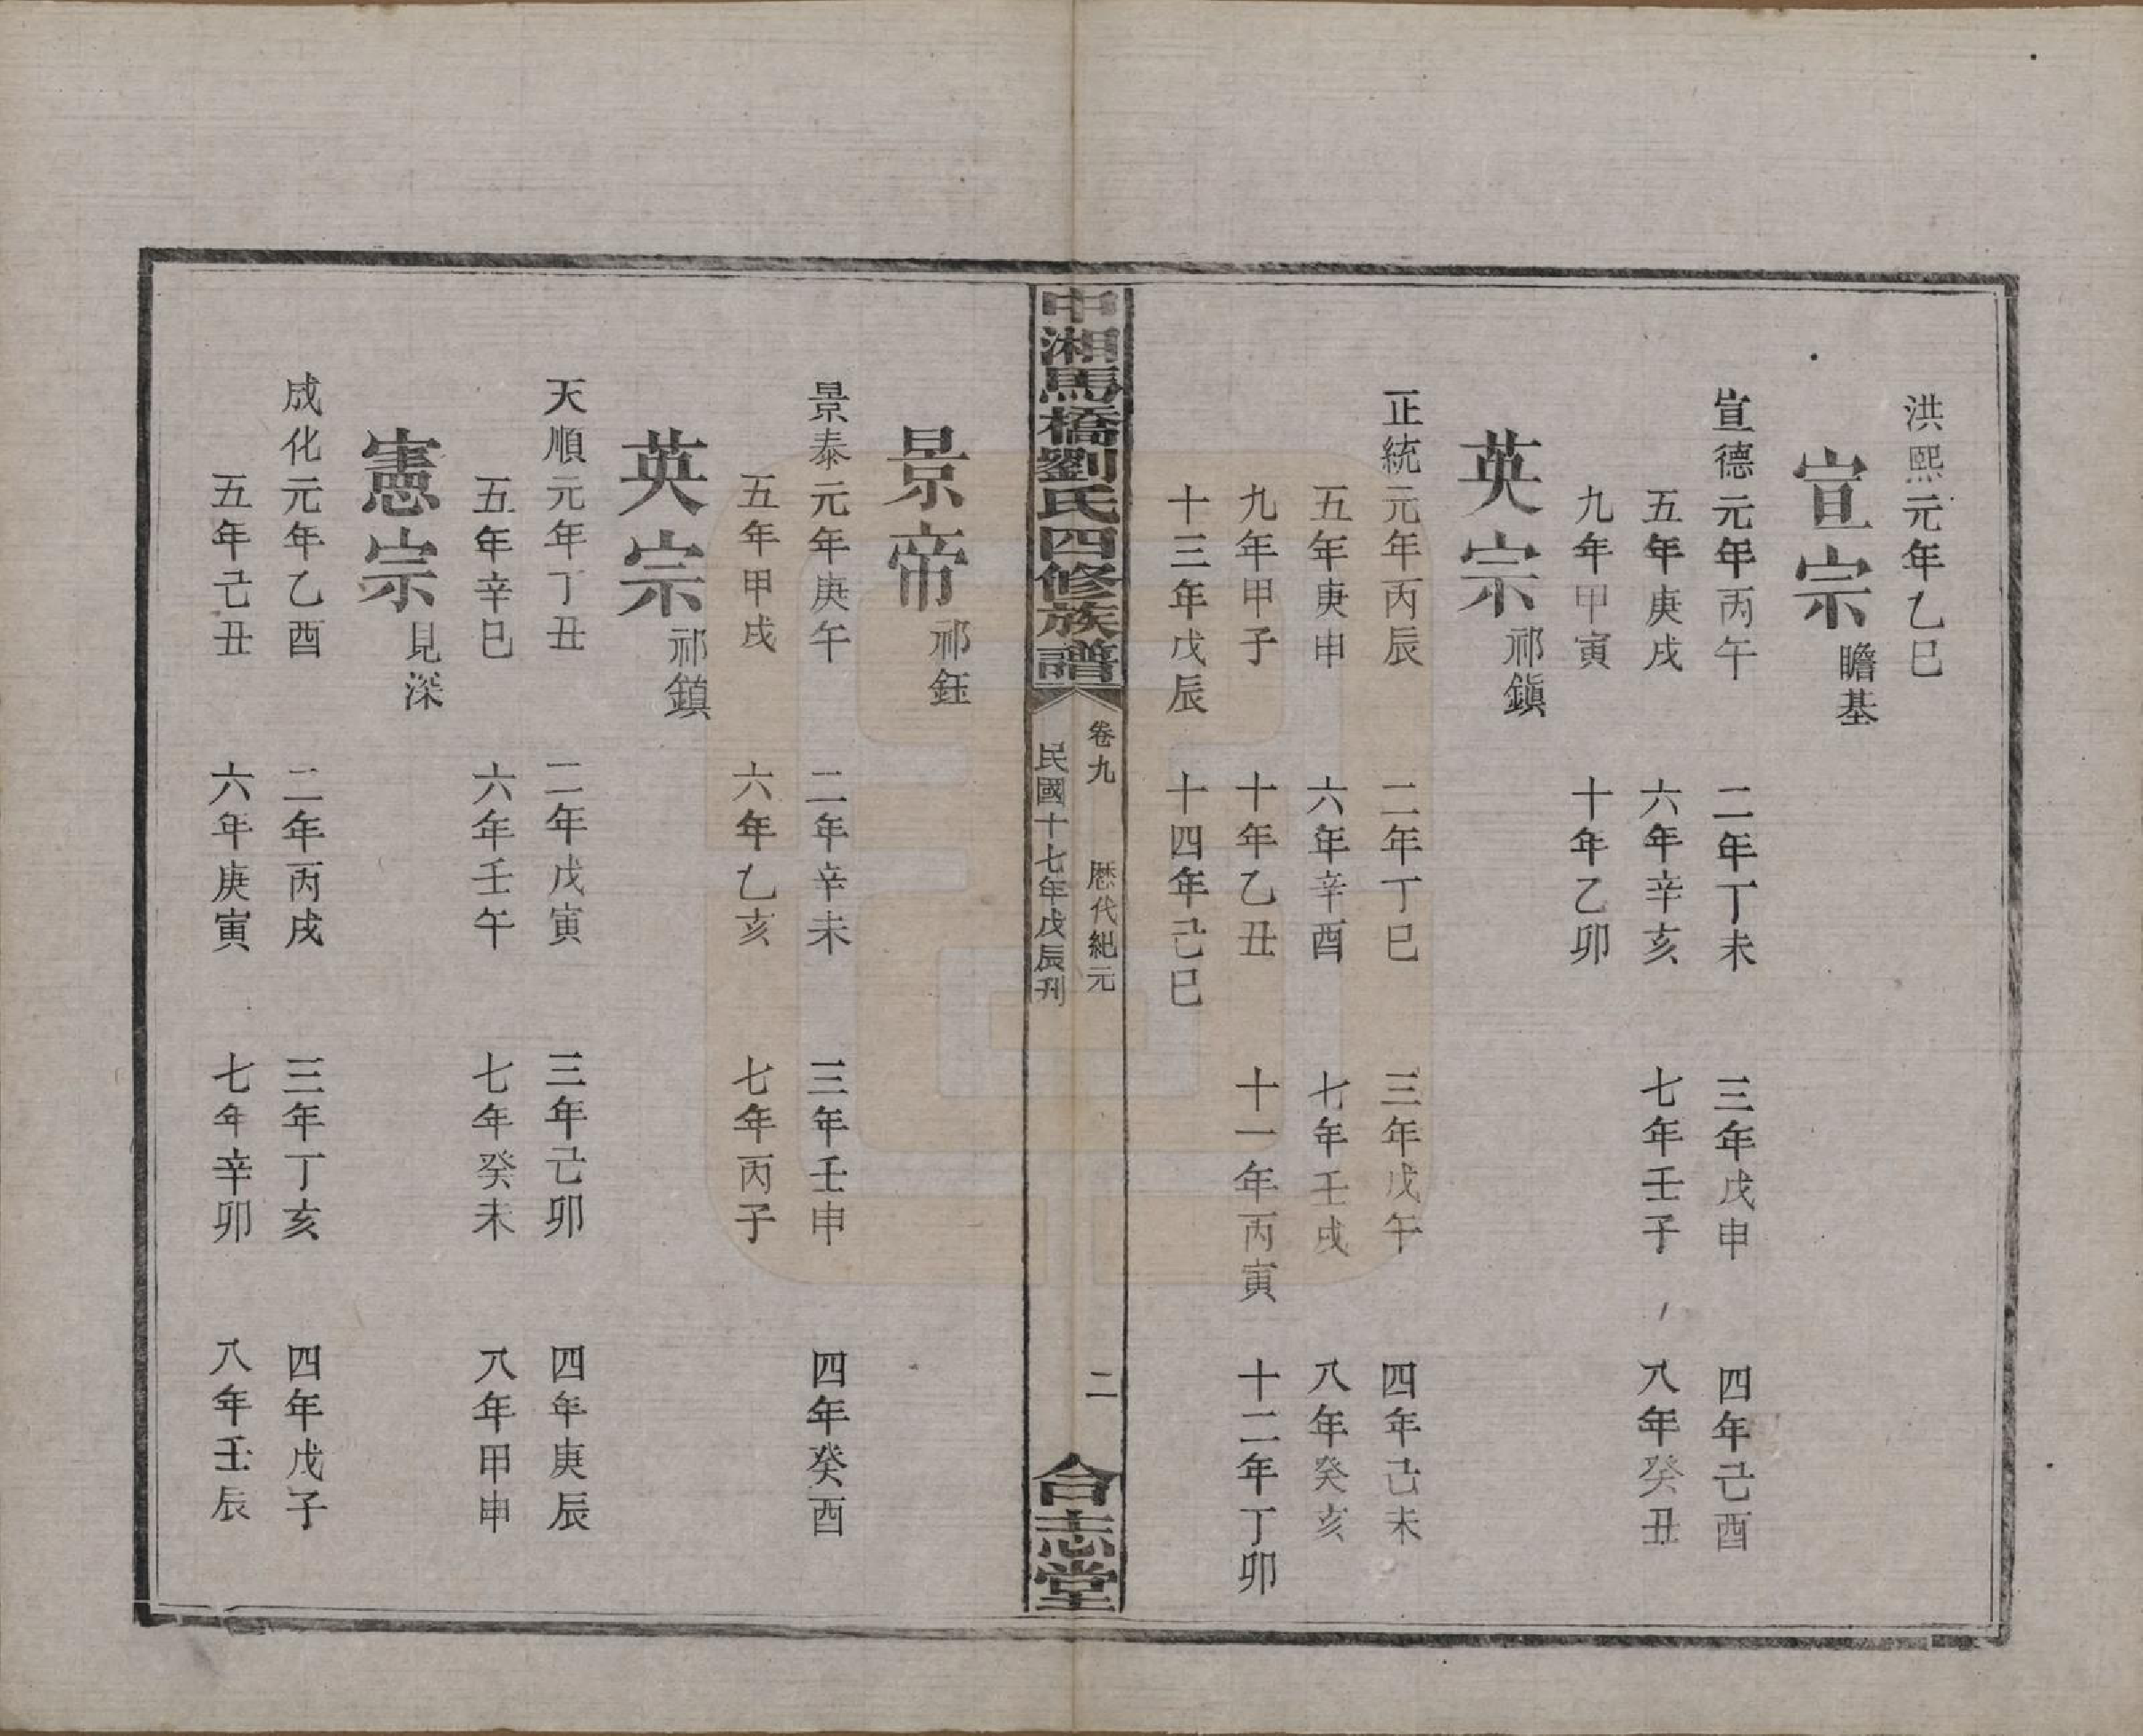 洪熙元年乙巳
宣宗瞻基
宣德元年丙午　二年丁未　三年戊申　四年己酉
五年庚戌　六年辛亥　七年壬子　八年癸丑
九年甲寅　十年乙卯
英宗祁鎭
正統元年丙辰　二年丁巳　三年戊午　四年己未
五年庚申　六年辛酉　七年壬戌　八年癸亥
九年甲子　十年乙丑　十一年丙寅　十二年丁卯
十三年戊辰　十四年己巳
中湘馬橋劉氏四修族譜
卷九　歷代紀元　二
民國十七年戊辰刋
合志堂
景帝祁鈺
景泰元年庚午　二年辛未　三年壬申　四年癸酉
五年甲戌　六年乙亥　七年丙子
英宗祁鎭
天順元年丁丑　二年戊寅　三年己卯　四年庚辰
五年辛巳　六年壬午　七年癸未　八年甲申
憲宗見深
成化元年乙酉　二年丙戌　三年丁亥　四年戊子
五年己丑　六年庚寅　七年辛卯　八年壬辰